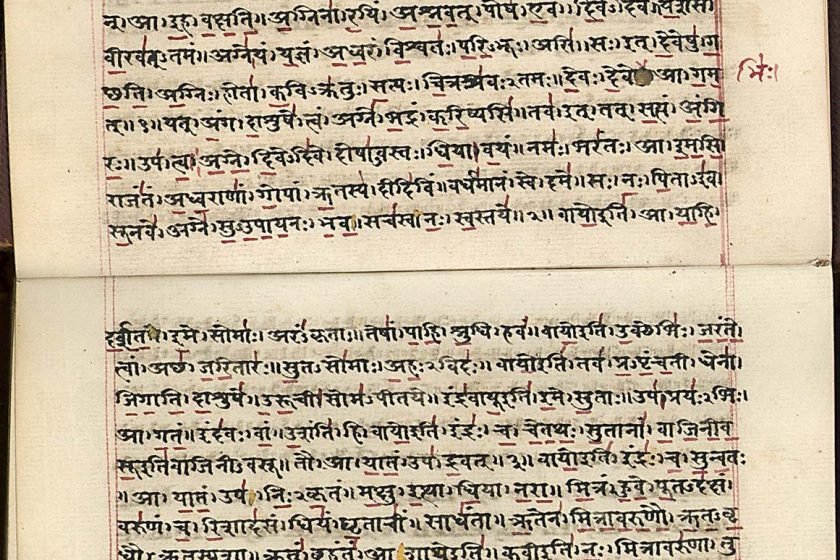 न्। आ। इह। वक्षति॥ अग्निना। रयिं। अश्नवत्। पोषं। एव। दिवेऽदिवे। यशसं
वीरवत्ऽतमं॥ अग्ने। यं। यज्ञं। अध्वरं। विश्वतः। परिऽभूः। असि। सः। इत्। देवेषु। ग
च्छति॥ अग्निः। होता। कविऽक्रतुः। सत्यः। चित्रश्रवःऽतमः। देवः। देवे आ। गम
भिः।
त्॥१॥ यत्। अंग। दाशुषे। त्वं। अग्ने। भद्रं। करिष्यसि। तव। इत्। तत्। सत्यं। अंगि
रः॥ उप। त्वा। अग्ने। दिवेऽदिवे। दोषाऽवस्तः। धिया। वयं। नमः। भरंतः। आ। इमसि
राजंतं। अध्वराणां। गोपां। ऋतस्य। दीदिविं॥ वर्धमानं। स्वे। दमे॥ सः। नः। पिताऽइव
सूनवे। अग्ने। सुऽउपायनः। भव। सचस्व। नः। स्वस्तये॥२॥ वायो इति। आ। याहि
दर्शत। इमे। सोमाः। अरंऽकृताः॥ तेषां। पाहि। श्रुधि। हवं॥ वायो इति। उक्थेभिः। जरंते
त्वां। अच्छ। जरितारः॥ सुतऽसोमाः। अहःऽविदः॥ वायो इति। तव। प्रऽपृंचती। धेना
जिगाति। दाशुषे॥ उरूची। सोमऽपीतये॥ इंद्रवायू इति। इमे। सुताः॥ उप। प्रयःऽभिः।
आ। गतं॥ इंदवः। वां। उशंति। हि॥ वायो इति। इंद्रः। च। चेतथः। सुतानां। वाजिनीव
सू इति वाजिनीऽवसू॥ तौ। आ। यातं। उप। द्रवत्॥३॥ वायो इति। इंद्रः। च। सुन्वतः
॥ आ। यातं। उप। निःऽकृतं॥ मक्षु। इत्था। धिया। नरा॥ मित्रं। हुवे। पूतऽदक्षं।
वरुणं। च। रिशादसं॥ धियं। घृताचीं। साधंता॥ ऋतेन। मित्रावरुणौ। ऋतऽवृ
धौ। ऋतऽस्पृशा॥ क्रतुं। बृहंतं। आशाथे इति॥ कवी इति। नः। मित्रावरुणा। तु